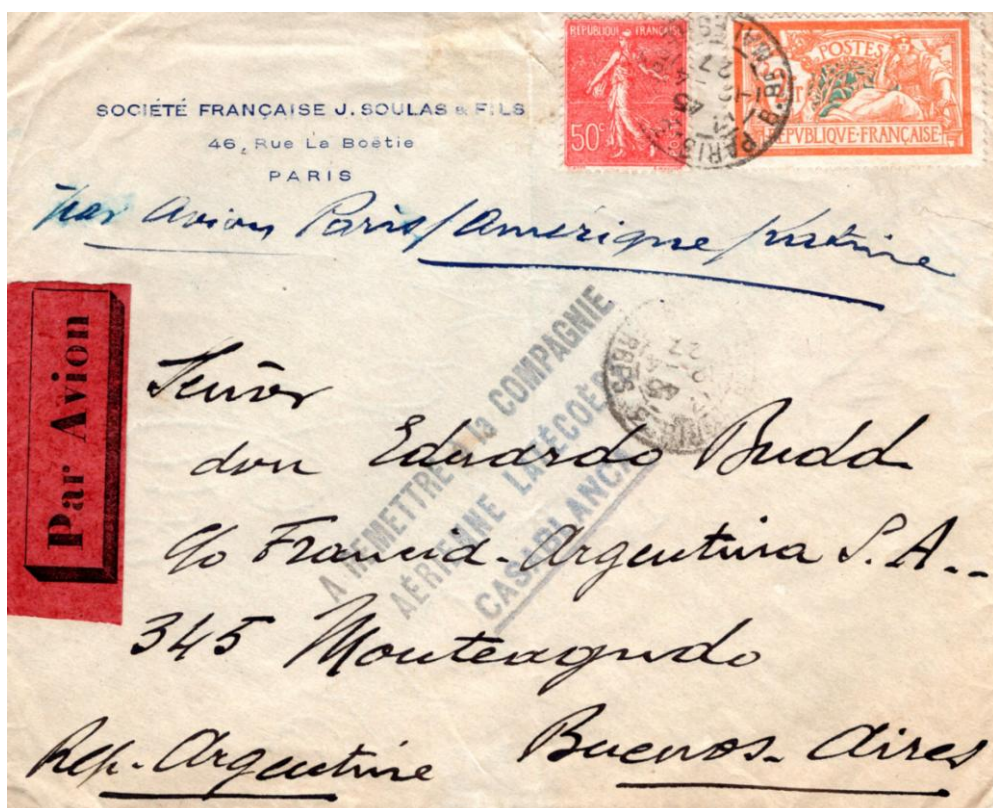 SOCIÉTÉ FRANÇAISE J. SOULAS & FILS
46, Rue La Boëtie
PARIS
RÉPUBLIQUE FRANÇAISE
50c
POSTES
REPVBLIQUE·FRANÇAISE
PARIS
27
par Avion Paris/Amérique/Latine
Par Avion
A REMETTRE à la COMPAGNIE
AÉRIENNE LATÉCOÈRE
CASABLANCA
Señor
don Eduardo Budd
c/o Francid-Argentina S.A.
345 Monteagudo
Buenos-Aires
Rep. Argentine